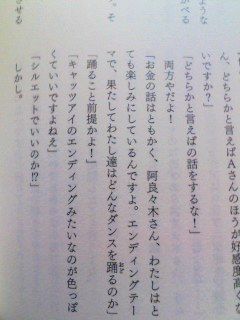 ん、どちらかと言えばAさんのほうが好感度高くな
いですか？」
「どちらかと言えばの話をするな！」
両方やだよ！
「お金の話はともかく、阿良々木さん、わたしはと
ても楽しみにしているんですよ。エンディングテー
マで、果たしてわたし達はどんなダンスを踊るのか」
おど
「踊ること前提かよ！」
「キャッツアイのエンディングみたいなのが色っぽ
くていいですよねえ」
「シルエットでいいのか!?」
しかし。